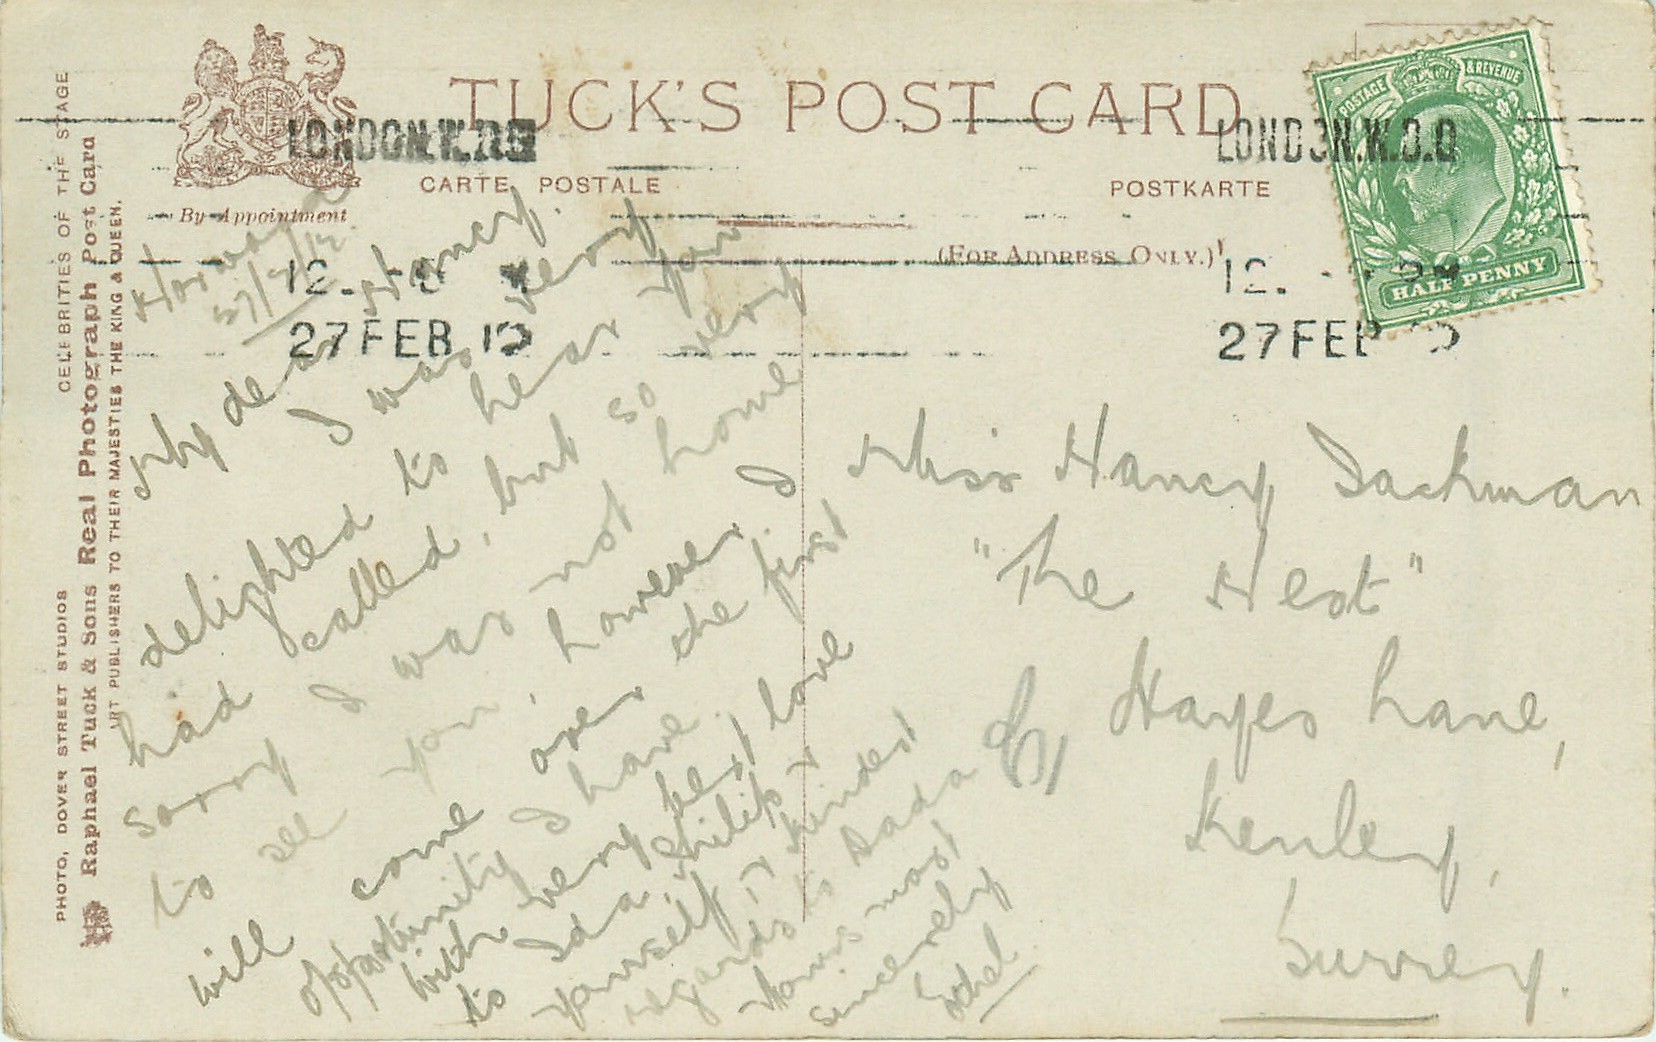 TUCK'S POST CARD
CARTE POSTALE
POSTKARTE
By Appointment
(FOR ADDRESS ONLY.)
CELEBRITIES OF THE STAGE
PHOTO, DOVER STREET STUDIOS
Raphael Tuck & Sons Real Photograph Post Card
ART PUBLISHERS TO THEIR MAJESTIES THE KING & QUEEN.
POSTAGE & REVENUE
HALF PENNY
LONDON.W.
12.
27 FEB
LONDON.W.
12.
27 FEB
27/2/12.
My dear Nancy.
I was very
delighted to hear you
had called, but so very
sorry I was not home
to see you, however I
will come over the first
opportunity I have.
With very best love
to Ida Philip &
yourself & kindest
regards to Dada
Yours most
sincerely
Ethel
Miss Nancy Jackman
"The Nest"
Hayes Lane,
Kenley,
Surrey.